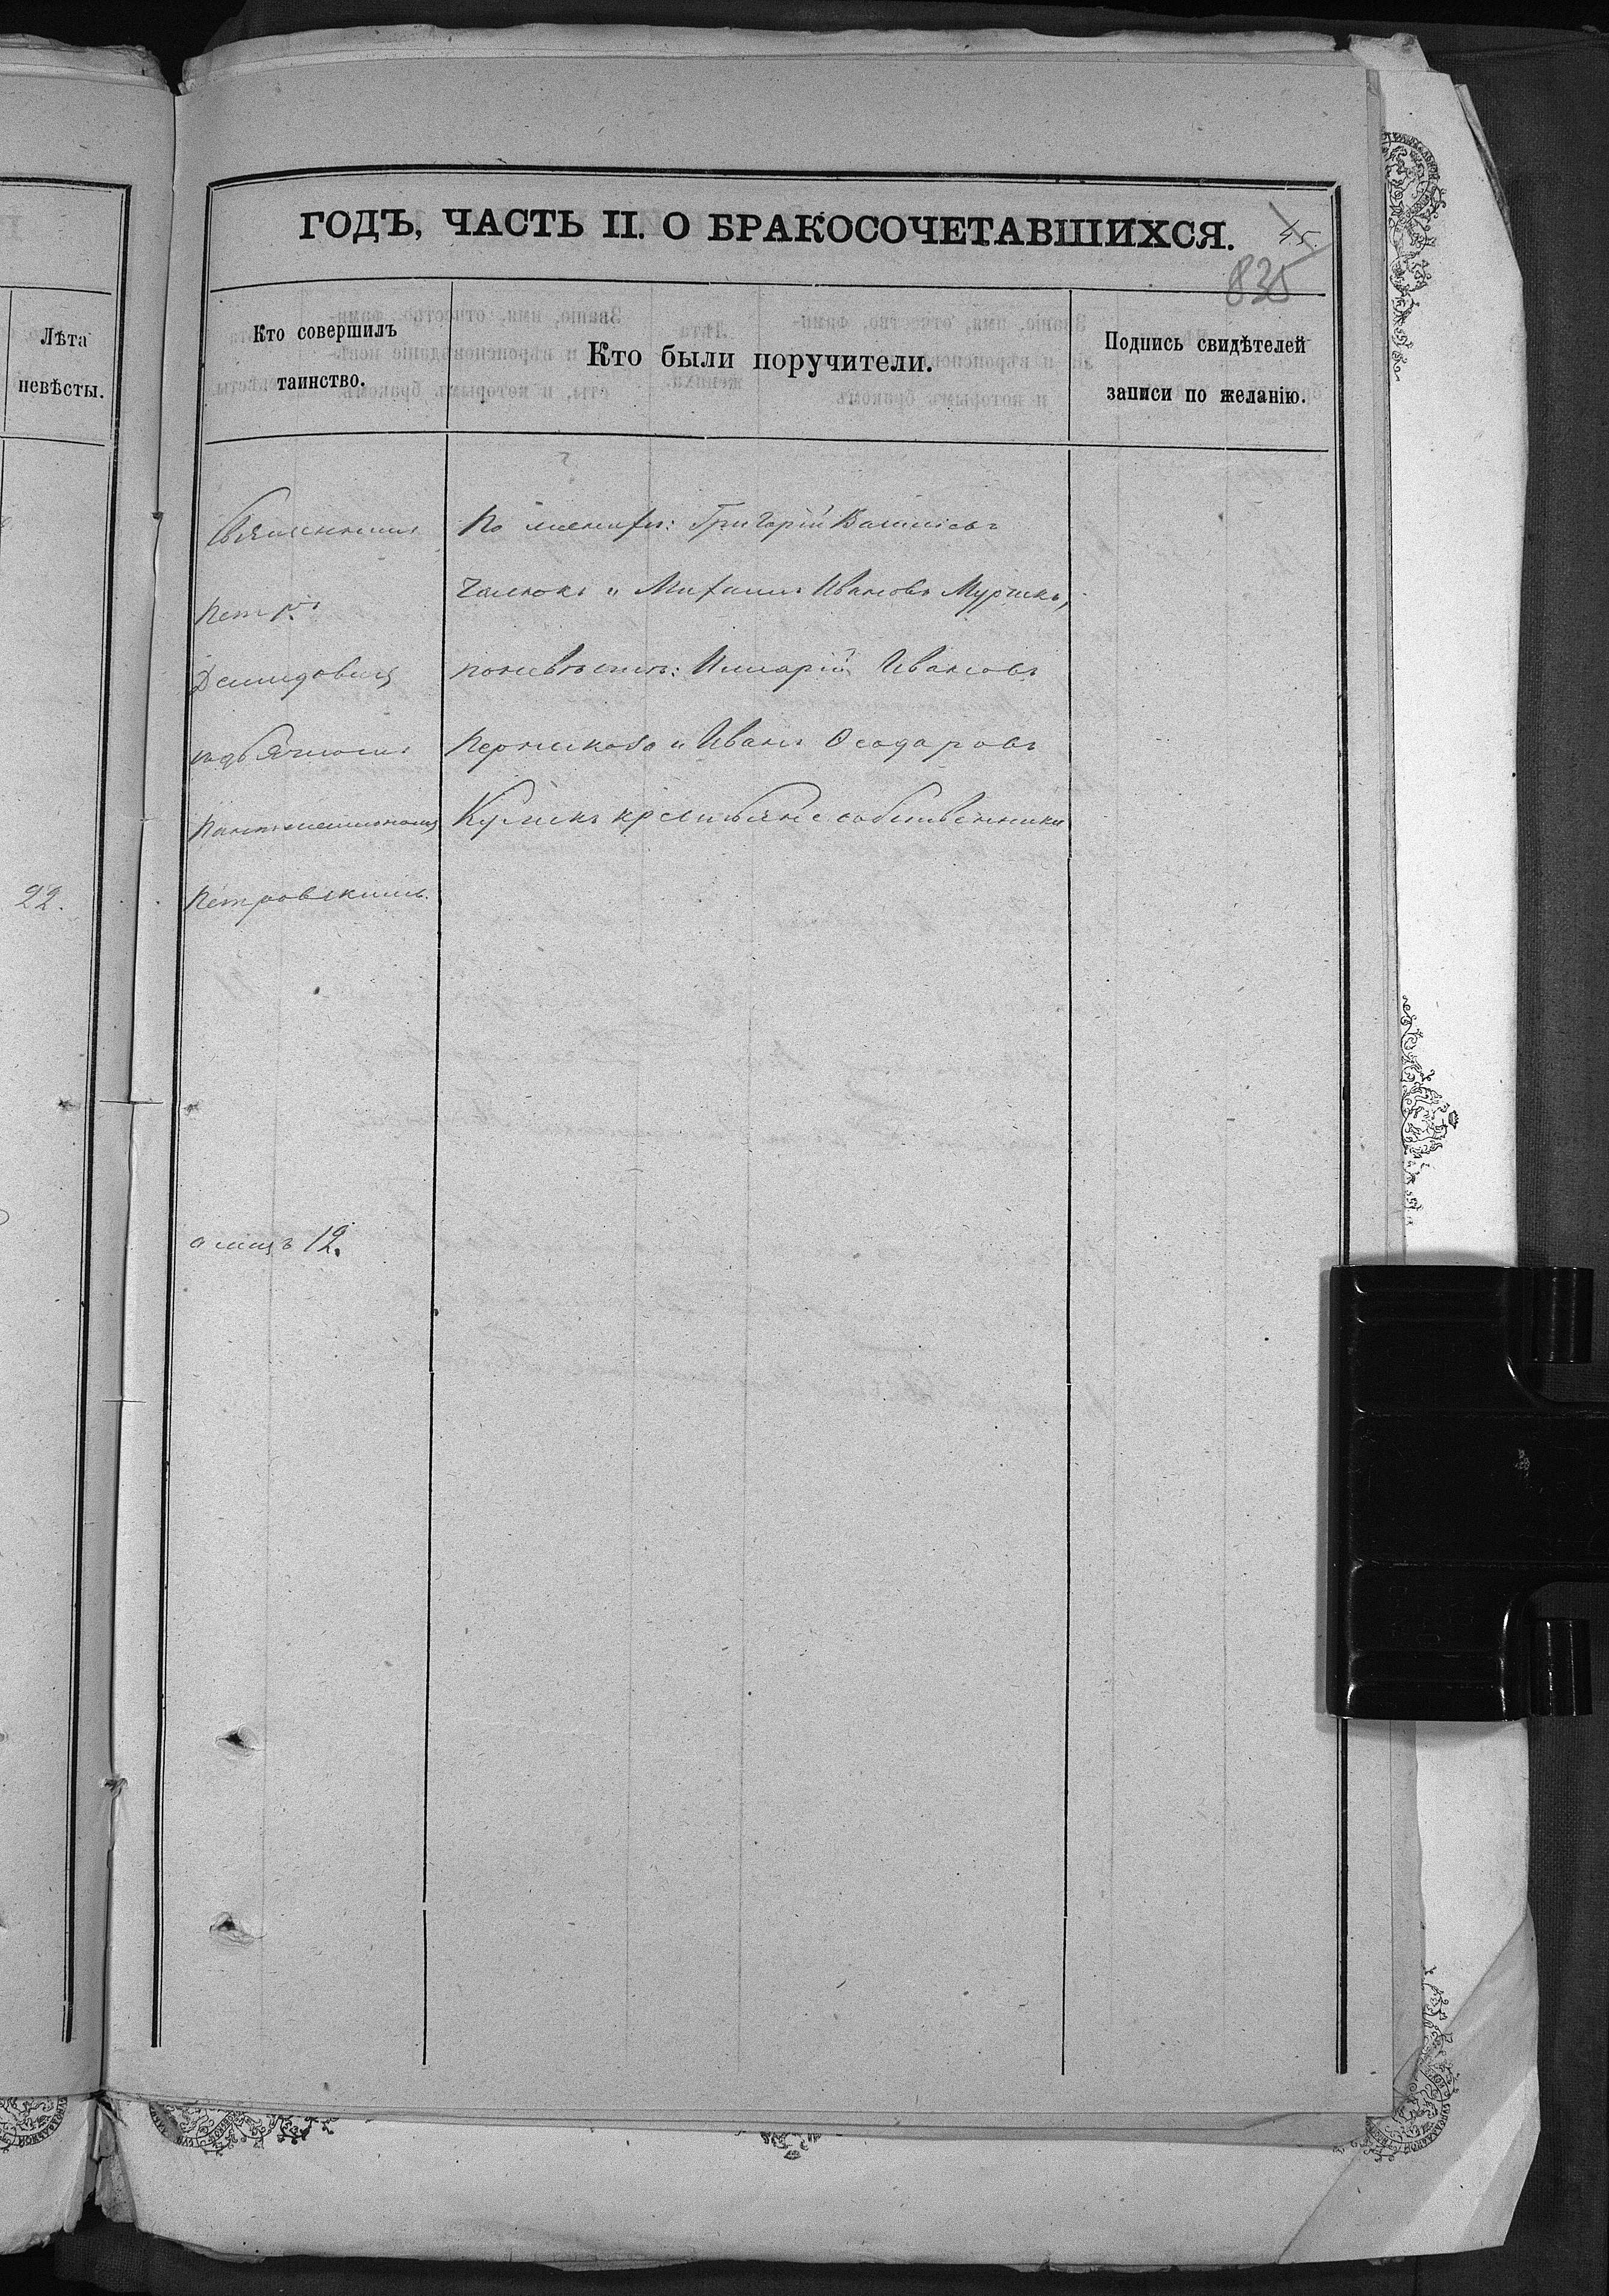 ГОДЪ, ЧАСТЬ II. О БРАКОСОЧЕТАВШИХСЯ.
45
835
Лѣта
невѣсты.
Кто совершилъ
таинство.
Кто были поручители.
Подпись свидѣтелей
записи по желанію.
Священникъ
Петръ
Демидовичъ
съ дьячкомъ
Петровскимъ.
По женихѣ: Григорій
и Михаилъ Ивановъ
по невѣстѣ: Иларій Ивановъ
и Иванъ Ѳеодоровъ
Куликъ крестьяне собственники
22.
а лицъ 12.